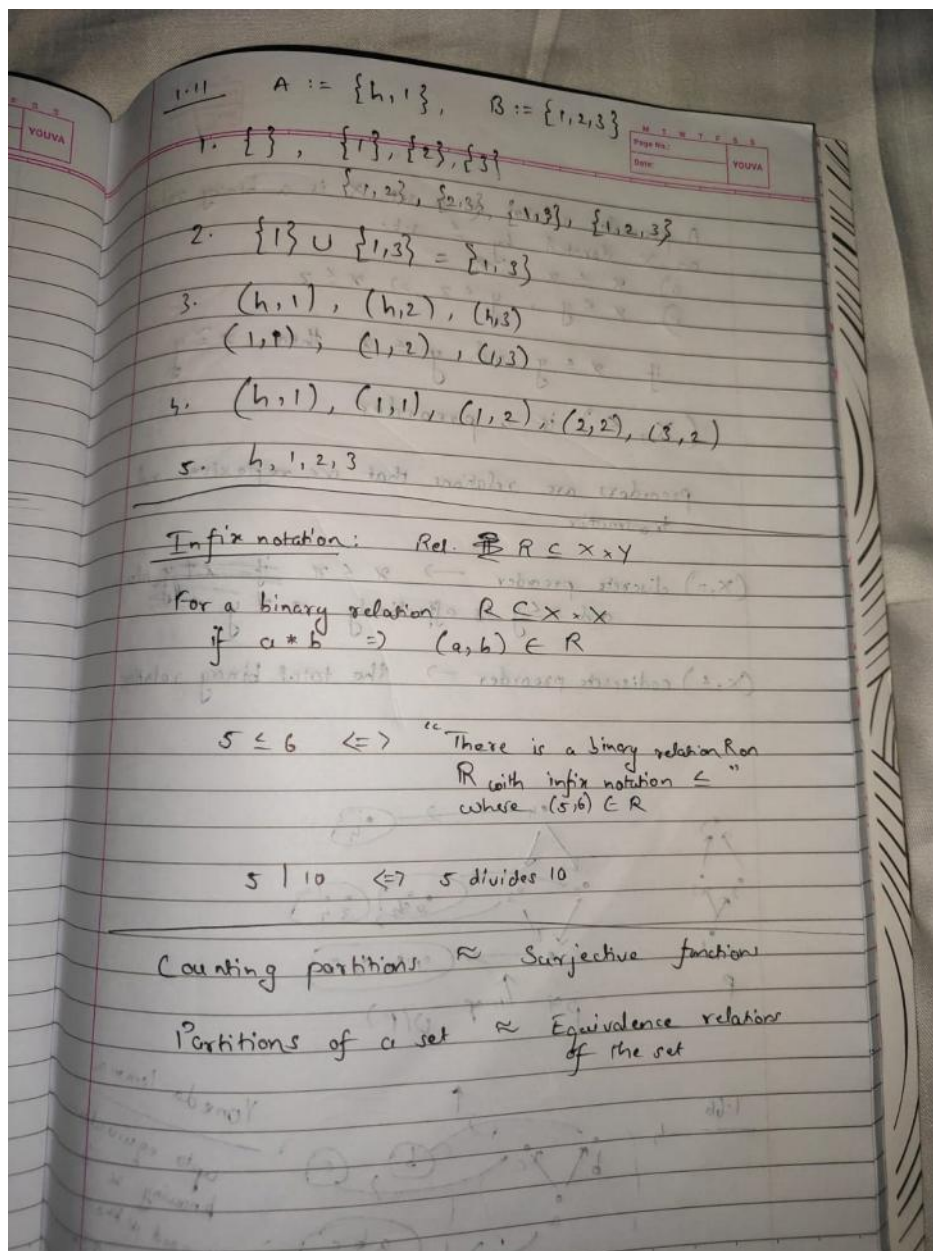 YOUVA
1.11 A := {h, 1}, B := {1,2,3}
M T W T F S S
Page No.:
Date:
YOUVA
1. { }, {1}, {2}, {3}
{1, 2}, {2,3}, {1,3}, {1,2,3}
2. {1} ∪ {1,3} = {1, 3}
3. (h, 1), (h, 2), (h,3)
(1,1), (1, 2), (1,3)
4. (h, 1), (1, 1), (1, 2), (2, 2), (3, 2)
5. h, 1, 2, 3
Infix notation: Rel. R ⊆ X × Y
For a binary relation R ⊆ X × X
if a * b => (a, b) ∈ R
5 ≤ 6 <=> "There is a binary relation R on
ℝ with infix notation ≤"
where (5,6) ∈ R
5 | 10 <=> 5 divides 10
Counting partitions ≈ Surjective functions
Partitions of a set ≈ Equivalence relations
of the set